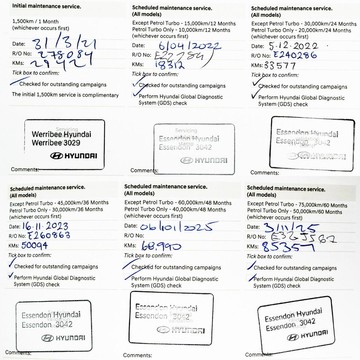 Initial maintenance service.
1,500km / 1 Month
(whichever occurs first)
Date: 31/3/21
R/O No: 278084
KMs:
Tick box to confirm:
Checked for outstanding campaigns
The initial 1,500km service is complimentary
Werribee Hyundai
Werribee 3029
HYUNDAI
Comments:
Scheduled maintenance service.
(All models)
Except Petrol Turbo - 15,000km/12 Months
Petrol Turbo Only - 10,000km/12 Months
(whichever occurs first)
Date: 6/04/2022
R/O No:
KMs: 18312
Tick box to confirm:
Checked for outstanding campaigns
Perform Hyundai Global Diagnostic
System (GDS) check
Essendon Hyundai
Essendon 3042
HYUNDAI
Comments:
Scheduled maintenance service.
(All models)
Except Petrol Turbo - 30,000km/24 Months
Petrol Turbo Only - 20,000km/24 Months
(whichever occurs first)
Date: 5.12.2022
R/O No: E240286
KMs: 33577
Tick box to confirm:
Checked for outstanding campaigns
Perform Hyundai Global Diagnostic
System (GDS) check
Essendon Hyundai
Essendon 3042
HYUNDAI
Comments:
Scheduled maintenance service.
(All models)
Except Petrol Turbo - 45,000km/36 Months
Petrol Turbo Only - 30,000km/36 Months
(whichever occurs first)
Date: 16.11.2023
R/O No: E260863
KMs: 50094
Tick box to confirm:
Checked for outstanding campaigns
Perform Hyundai Global Diagnostic
System (GDS) check
Essendon Hyundai
Essendon 3042
HYUNDAI
Comments:
Scheduled maintenance service.
(All models)
Except Petrol Turbo - 60,000km/48 Months
Petrol Turbo Only - 40,000km/48 Months
(whichever occurs first)
Date: 06/01/2025
R/O No:
KMs: 68,940
Tick box to confirm:
Checked for outstanding campaigns
Perform Hyundai Global Diagnostic
System (GDS) check
Essendon Hyundai
Essendon 3042
HYUNDAI
Comments:
Scheduled maintenance service.
(All models)
Except Petrol Turbo - 75,000km/60 Months
Petrol Turbo Only - 50,000km/60 Months
(whichever occurs first)
Date: 3/11/25
R/O No:
KMs: 85357
Tick box to confirm:
Checked for outstanding campaigns
Perform Hyundai Global Diagnostic
System (GDS) check
Essendon Hyundai
Essendon 3042
HYUNDAI
Comments: